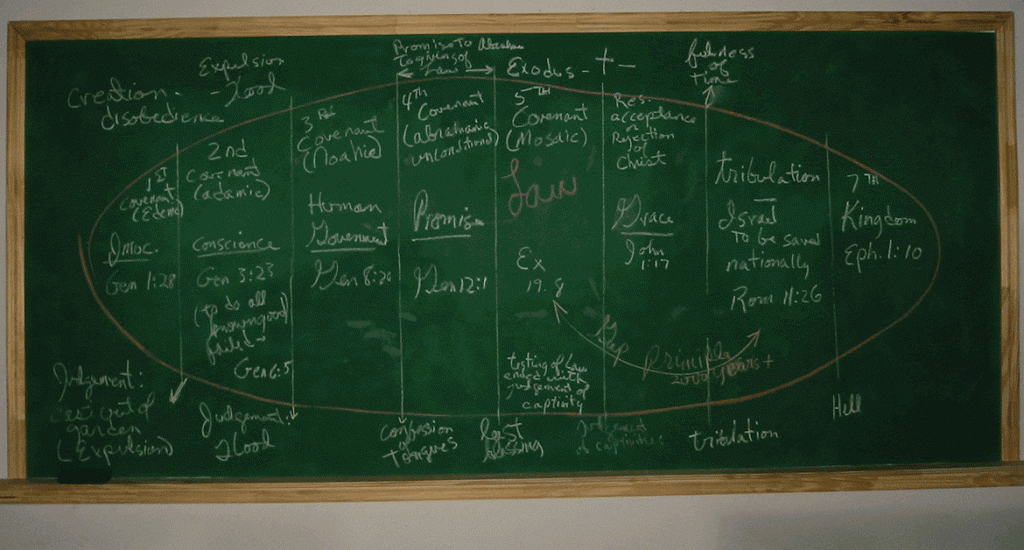 Creation -
disobedience
Expulsion
- Flood
Promise To Abraham
To giving of
Law
Exodus - † -
fulness
of
time
1st
Covenant
(Edenic)
Innoc.
Gen 1:28
Judgement:
cast out of
garden
(Expulsion)
2nd
Covenant
(adamic)
conscience
Gen 3:23
(to do all
known good)
failed →
Gen 6:5
Judgement:
Flood
3rd
Covenant
(Noahic)
Human
Government
Gen 8:20
4th
Covenant
(abrahamic
unconditional)
Promise
Gen 12:1
confession
of
Tongues
5th
Covenant
(Mosaic)
Law
Ex
19:8
testing of Law
ended with
judgement of
captivity
lost
blessing
Res.
acceptance
or
Rejection
of
Christ
Grace
John
1:17
Gap Principle
2000 years +
of captivities
tribulation
Israel
To be saved
nationally
Rom 11:26
tribulation
7th
Kingdom
Eph. 1:10
Hell